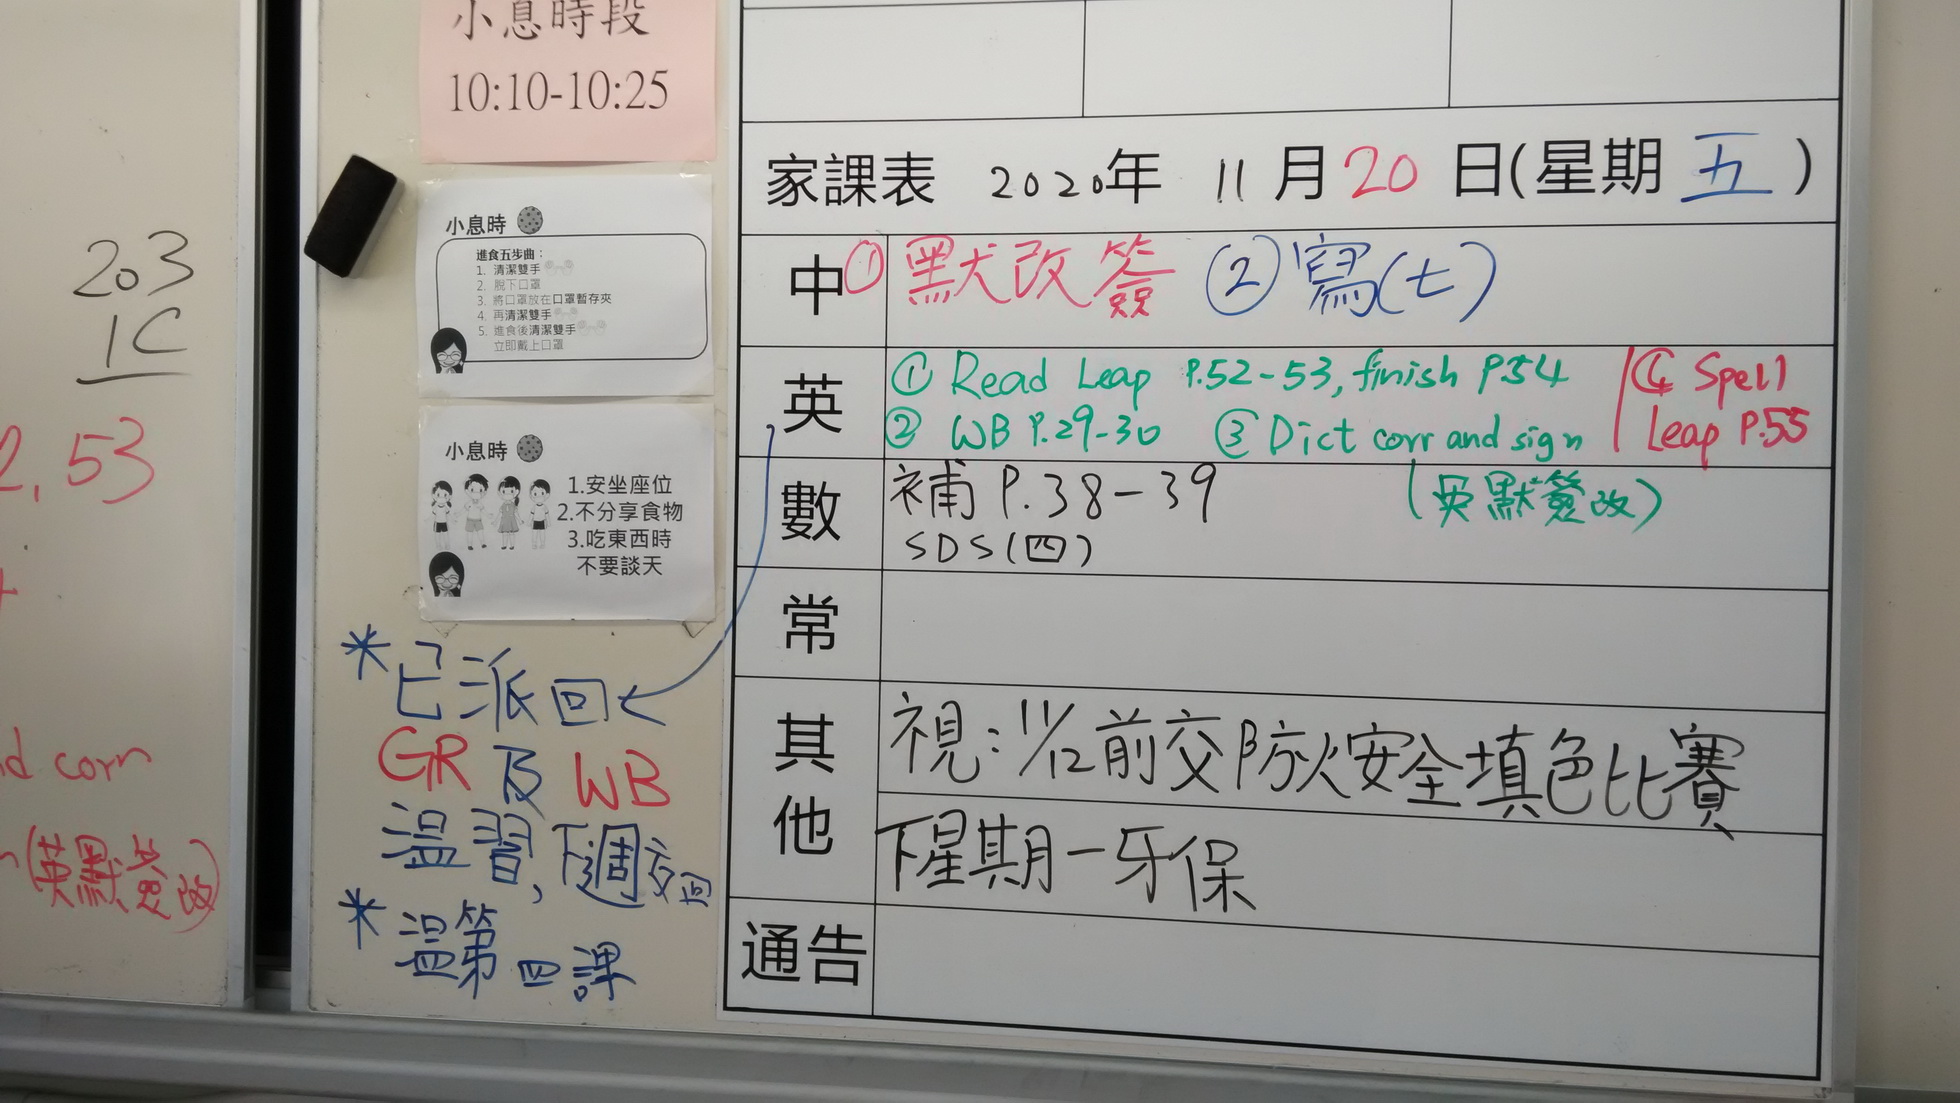 小息時段
10:10-10:25
小息時
進食五步曲：
1. 清潔雙手
2. 脫下口罩
3. 將口罩放在口罩暫存夾
4. 再清潔雙手
5. 進食後清潔雙手
立即戴上口罩
小息時
1.安坐座位
2.不分享食物
3.吃東西時
不要談天
*已派回
GR及WB
溫習,下週交回
*溫第四課
203
1C
2,53
d corn
(英默簽改)
家課表 2020年 11月20日(星期五)
中 ①默改簽 ②寫(七)
英
① Read Leap P.52-53, finish P54
② WB P.29-30 ③ Dict corr and sign
④ Spell
Leap P.55
(英默簽改)
數
補 P.38-39
SDS(四)
常
其他
視：11/12前交防火安全填色比賽
下星期一牙保
通告